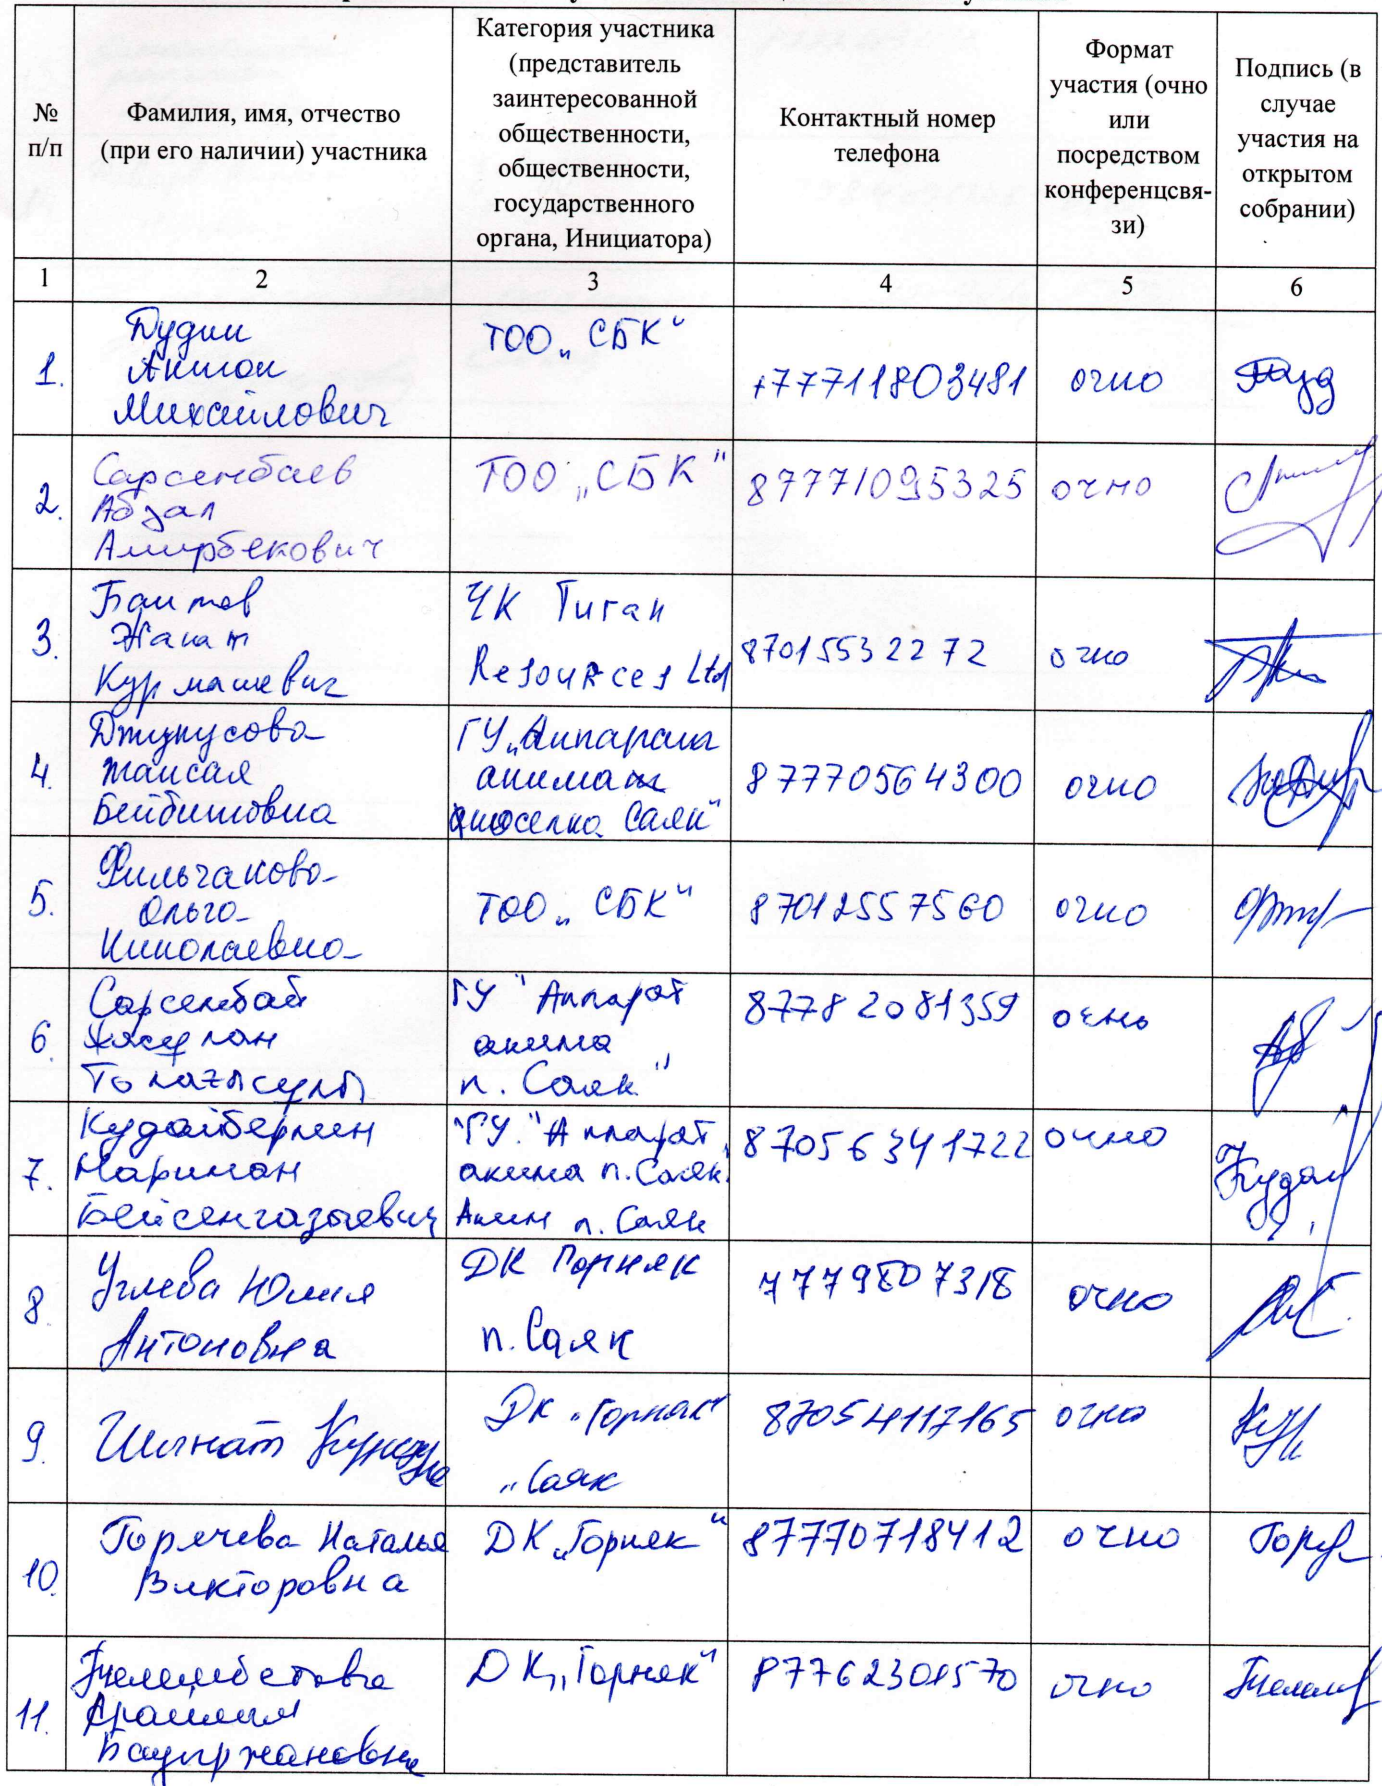 №
п/п
Фамилия, имя, отчество
(при его наличии) участника
Категория участника
(представитель
заинтересованной
общественности,
общественности,
государственного
органа, Инициатора)
Контактный номер
телефона
Формат
участия (очно
или
посредством
конференцсвя-
зи)
Подпись (в
случае
участия на
открытом
собрании)
1 2 3 4 5 6
1.
Дудин
Антон
Михайлович
ТОО „СБК“
+77711803481
очно
2.
Сарсенбаев
Абзал
Амирбекович
ТОО „СБК"
87771095325
очно
3.
Баитов
Жанат
Курмашевич
ЧК Титан
Resources Ltd
87015532272
очно
4.
Джунусова
Жансая
Бейбитовна
ГУ „Аппарат
акима
поселка Саяк"
87770564300
очно
5.
Фильчакова
Ольга
Николаевна
ТОО „СБК"
87012557560
очно
6.
Сарсембай
ГУ "Аппарат
акима
п. Саяк"
87782081359
очно
7.
Кудайберген
Нариман
Бейсенгазыевич
"ГУ." Аппарат
акима п. Саяк.
Аким п. Саяк
87056341722
очно
8.
Углева Юлия
Антоновна
ДК Горняк
п. Саяк
очно
9.
ДК „Горняк"
„Саяк
87054117165
очно
10.
Горячева Наталья
Викторовна
ДК „Горняк"
87770718412
очно
11.
Бауыржановна
ДК „Горняк"
87762301570
очно